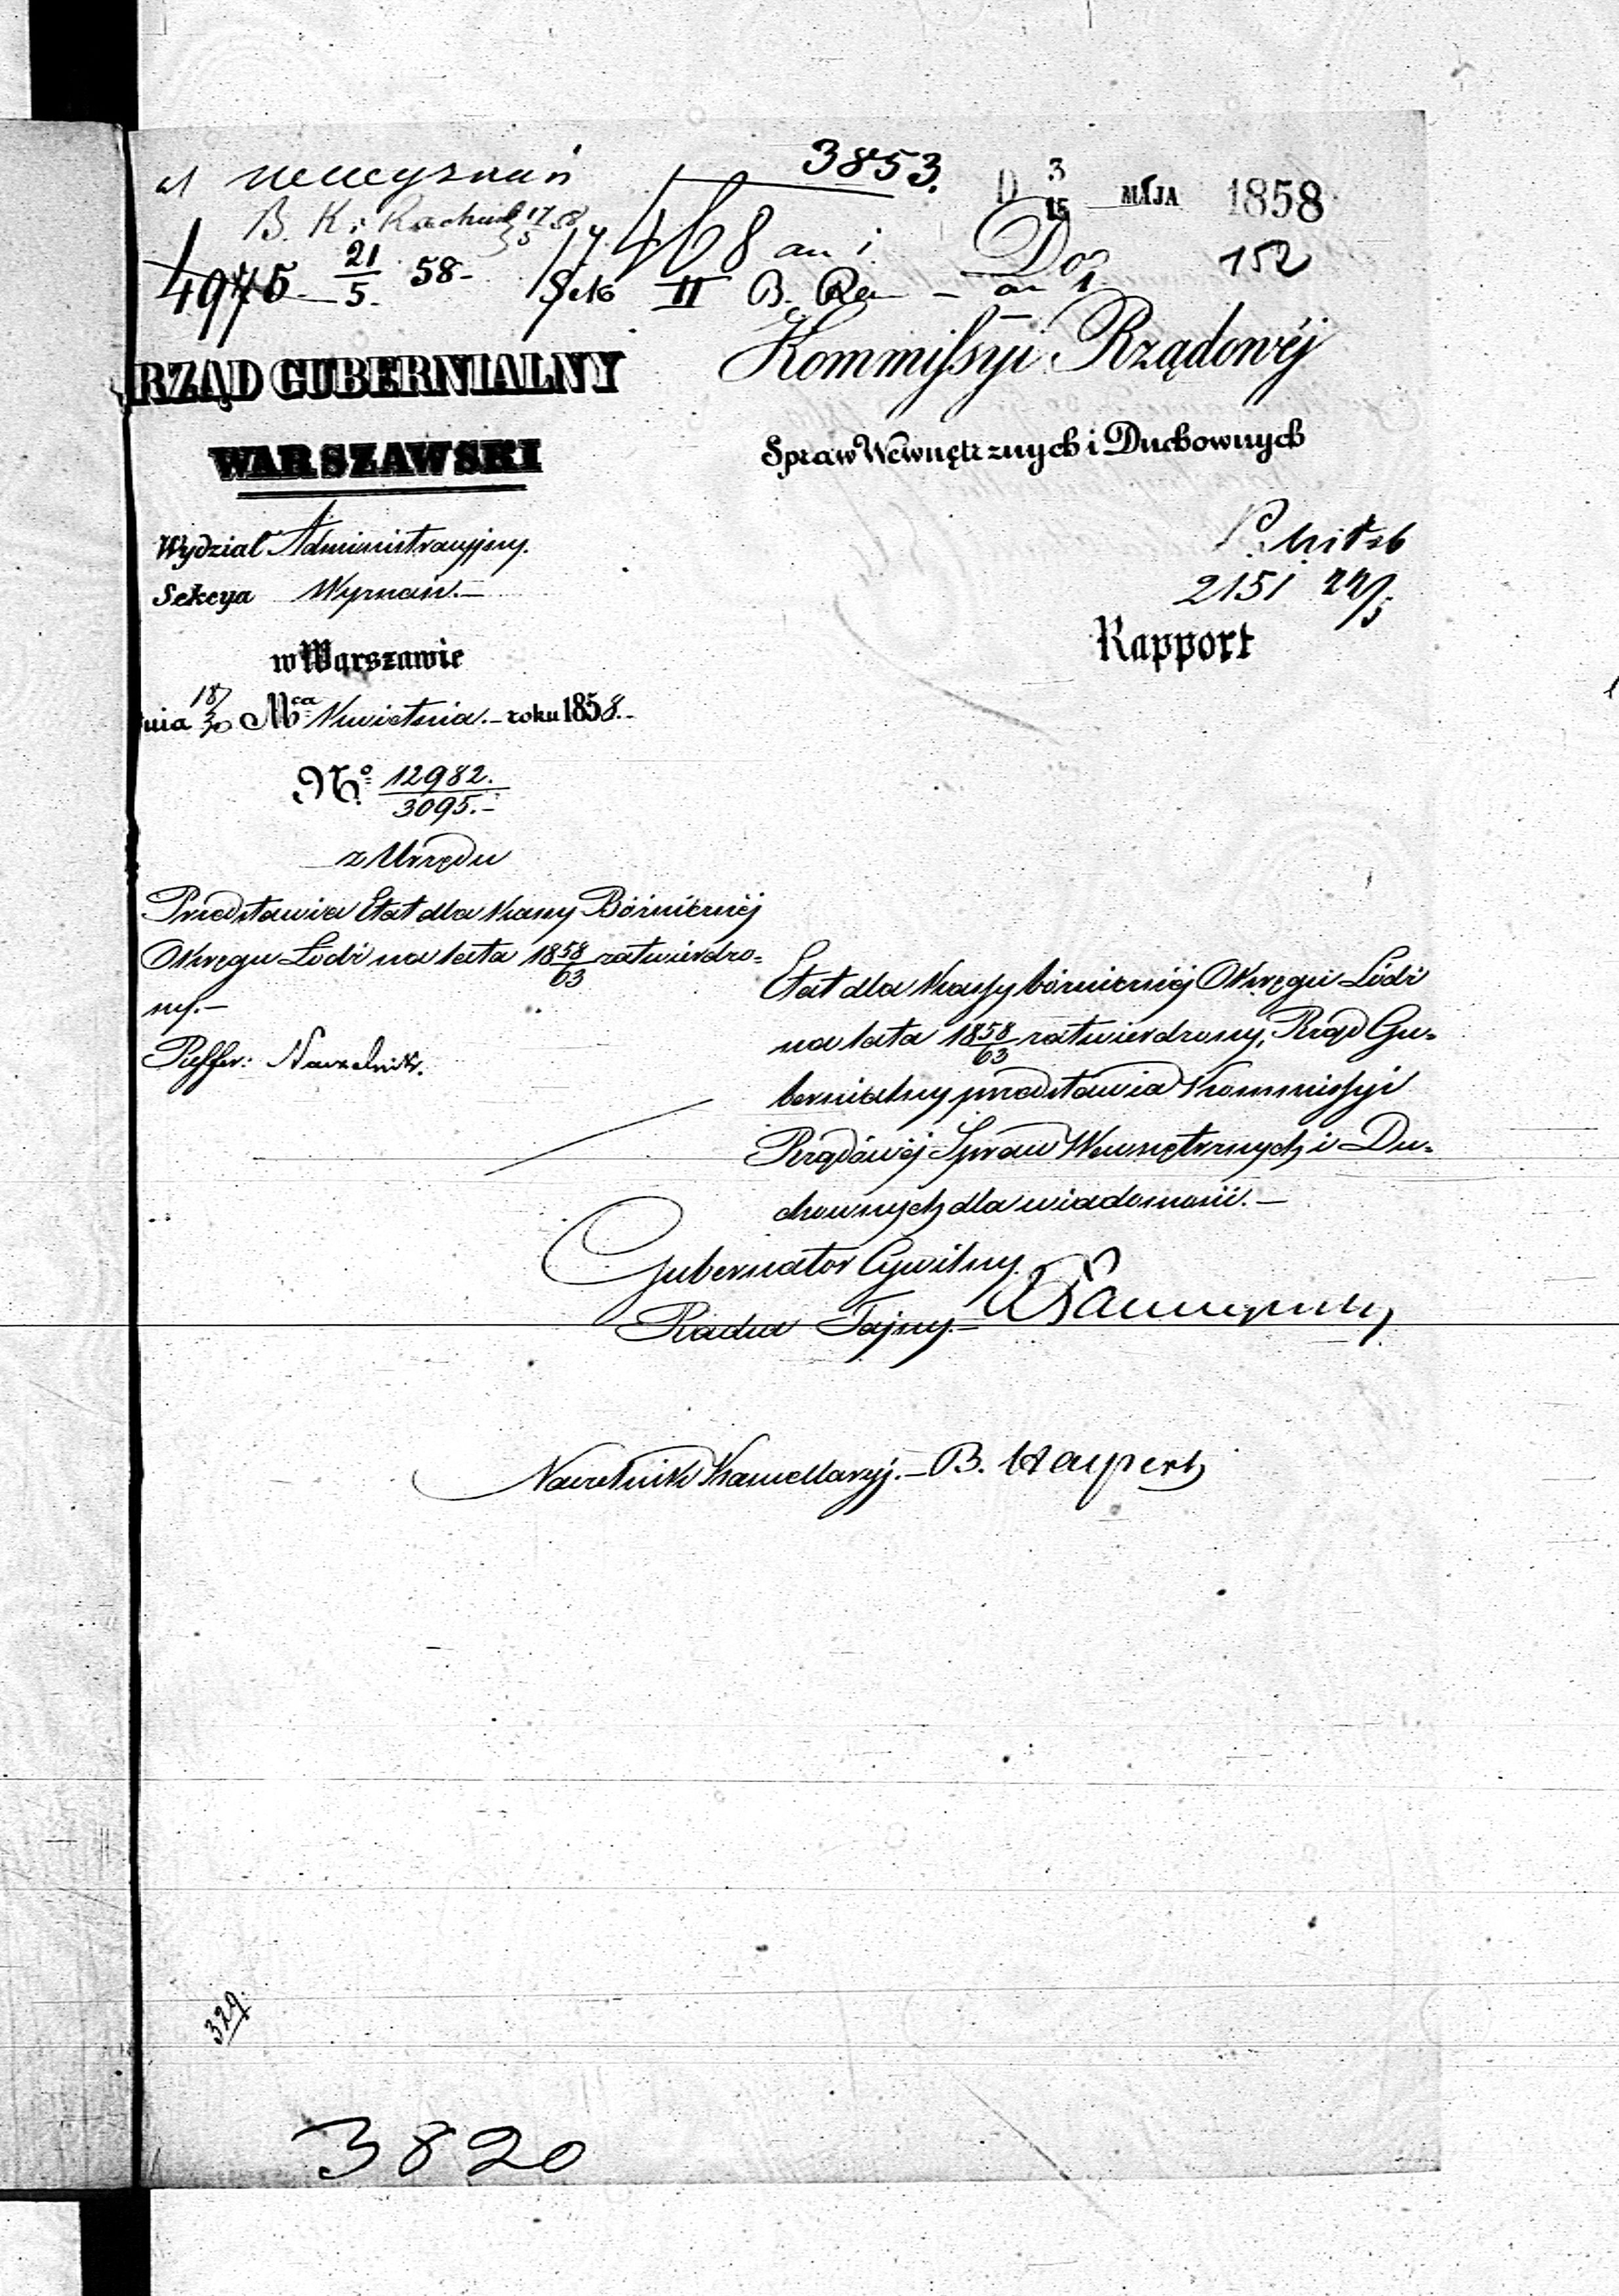 3853.
D 3/15 MAJA 1858
B. K.
468
Do
152
4975 21/5 58-
II B.
RZĄD GUBERNIALNY
WARSZAWSKI
Wydział Administracyjny.
Sekcya Wyznań.-
w Warszawie
nia 18/30 Mca Kwietnia.- roku 1858.-
No 12982./3095.-
z Urzędu
Przedstawia Etat dla Kassy Bóżniczéj
Okręgu Łodzi na lata 1858/63 zatwierdzo=
ny.-
Reffer: Naczelnik.
Kommissyi Rządowéj
Spraw Wewnętrznych i Duchownych
2151 22/5
Rapport
Etat dla Kassy bóżniczéj Okręgu Łodzi
na lata 1858/63 zatwierdzony, Rząd Gu=
bernialny przedstawia Kommissyi
Rządowéj Spraw Wewnętrznych i Du=
chownych dla wiadomości.-
Gubernator Cywilny.
Radca Tajny.-
Naczelnik Kancellaryi.- B.
329.
3820